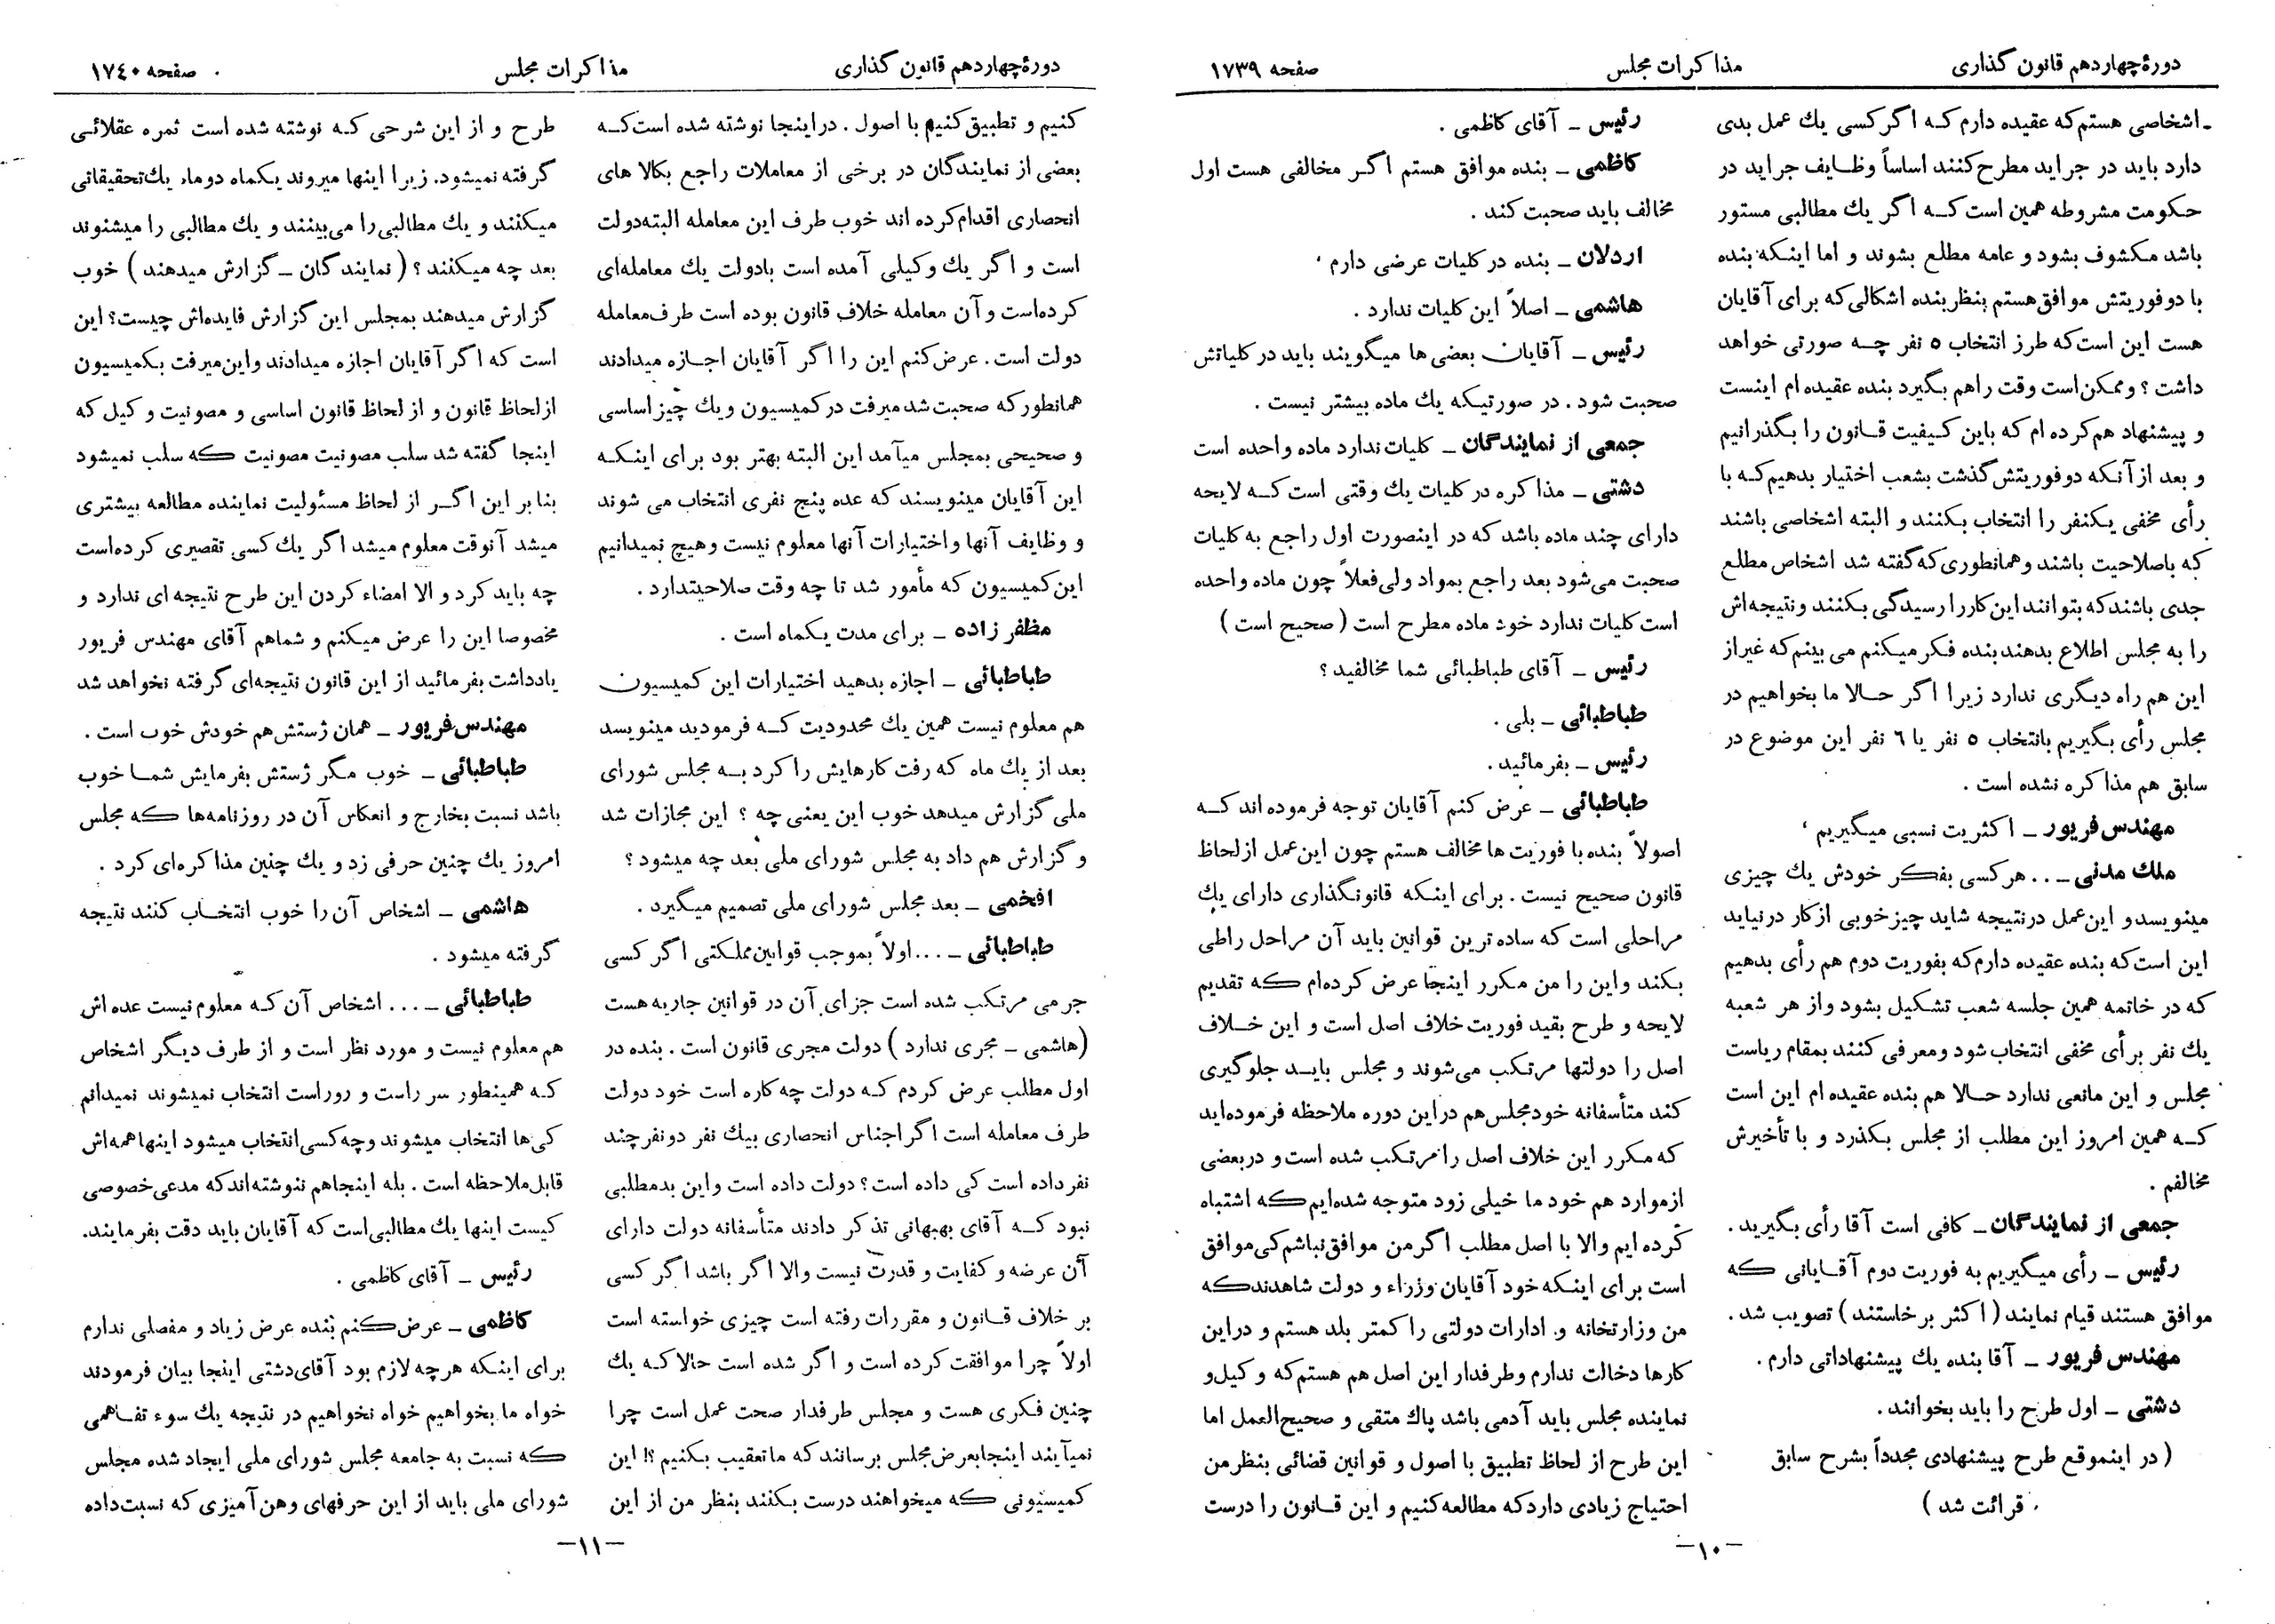 دورهٔ چهاردهم قانون گذاری
مذاکرات مجلس
صفحه ۱۷۳۹
اشخاصی هستم که عقیده دارم که اگر کسی یك عمل بدی
دارد باید در جراید مطرح کنند اساساً وظایف جراید در
حکومت مشروطه همین است که اگر یك مطالبی مستور
باشد مکشوف بشود و عامه مطلع بشوند و اما اینکه بنده
با دوفوریتش موافق هستم بنظر بنده اشکالی که برای آقایان
هست این است که طرز انتخاب ۵ نفر چه صورتی خواهد
داشت ؟ و ممکن است وقت را هم بگیرد بنده عقیده ام اینست
و پیشنهاد هم کرده ام که باین کیفیت قانون را بگذرانیم
و بعد از آنکه دوفوریتش گذشت بشعب اختیار بدهیم که با
رأی مخفی یکنفر را انتخاب بکنند و البته اشخاصی باشند
که باصلاحیت باشند و همانطوری که گفته شد اشخاص مطلع
جدی باشند که بتوانند این کار را رسیدگی بکنند و نتیجه اش
را به مجلس اطلاع بدهند بنده فکر میکنم می بینم که غیر از
این هم راه دیگری ندارد زیرا اگر حالا ما بخواهیم در
مجلس رأی بگیریم بانتخاب ۵ نفر یا ٦ نفر این موضوع در
سابق هم مذاکره نشده است .
مهندس فریور ـ اکثریت نسبی میگیریم
ملك مدنی ـ . . هر کسی بفکر خودش یك چیزی
مینویسد و این عمل در نتیجه شاید چیز خوبی از کار در نیاید
این است که بنده عقیده دارم که بفوریت دوم هم رأی بدهیم
که در خاتمه همین جلسه شعب تشکیل بشود و از هر شعبه
یك نفر برأی مخفی انتخاب شود و معرفی کنند بمقام ریاست
مجلس و این مانعی ندارد حالا هم بنده عقیده ام این است
که همین امروز این مطلب از مجلس بگذرد و با تأخیرش
مخالفم .
جمعی از نمایندگان ـ کافی است آقا رأی بگیرید .
رئیس ـ رأی میگیریم به فوریت دوم آقایانی که
موافق هستند قیام نمایند ( اکثر برخاستند ) تصویب شد .
مهندس فریور ـ آقا بنده یك پیشنهاداتی دارم .
دشتی ـ اول طرح را باید بخوانند .
( در اینموقع طرح پیشنهادی مجدداً بشرح سابق
قرائت شد )
رئیس ـ آقای کاظمی .
کاظمی ـ بنده موافق هستم اگر مخالفی هست اول
مخالف باید صحبت کند .
اردلان ـ بنده در کلیات عرضی دارم
هاشمی ـ اصلاً این کلیات ندارد .
رئیس ـ آقایان بعضی ها میگویند باید در کلیاتش
صحبت شود . در صورتیکه یك ماده بیشتر نیست .
جمعی از نمایندگان ـ کلیات ندارد ماده واحده است
دشتی ـ مذاکره در کلیات یك وقتی است که لایحه
دارای چند ماده باشد که در اینصورت اول راجع به کلیات
صحبت می شود بعد راجع بمواد ولی فعلاً چون ماده واحده
است کلیات ندارد خود ماده مطرح است ( صحیح است )
رئیس ـ آقای طباطبائی شما مخالفید ؟
طباطبائی ـ بلی .
رئیس ـ بفرمائید .
طباطبائی ـ عرض کنم آقایان توجه فرموده اند که
اصولاً بنده با فوریت ها مخالف هستم چون این عمل از لحاظ
قانون صحیح نیست . برای اینکه قانونگذاری دارای یك
مراحلی است که ساده ترین قوانین باید آن مراحل را طی
بکند و این را من مکرر اینجا عرض کرده ام که تقدیم
لایحه و طرح بقید فوریت خلاف اصل است و این خلاف
اصل را دولتها مرتکب می شوند و مجلس باید جلوگیری
کند متأسفانه خود مجلس هم در این دوره ملاحظه فرموده اید
که مکرر این خلاف اصل را مرتکب شده است و در بعضی
از موارد هم خود ما خیلی زود متوجه شده ایم که اشتباه
کرده ایم والا با اصل مطلب اگر من موافق نباشم کی موافق
است برای اینکه خود آقایان وزراء و دولت شاهدند که
من وزارتخانه و ادارات دولتی را کمتر بلد هستم و در این
کارها دخالت ندارم و طرفدار این اصل هم هستم که وکیل و
نماینده مجلس باید آدمی باشد پاك متقی و صحیح العمل اما
این طرح از لحاظ تطبیق با اصول و قوانین قضائی بنظر من
احتیاج زیادی دارد که مطالعه کنیم و این قانون را درست
ـ۱۰ـ
دورهٔ چهاردهم قانون گذاری
مذاکرات مجلس
صفحه ۱۷٤۰
کنیم و تطبیق کنیم با اصول . در اینجا نوشته شده است که
بعضی از نمایندگان در برخی از معاملات راجع بکالا های
انحصاری اقدام کرده اند خوب طرف این معامله البته دولت
است و اگر یك وکیلی آمده است با دولت یك معامله ای
کرده است و آن معامله خلاف قانون بوده است طرف معامله
دولت است . عرض کنم این را اگر آقایان اجازه میدادند
همانطور که صحبت شد میرفت در کمیسیون و یك چیز اساسی
و صحیحی بمجلس میآمد این البته بهتر بود برای اینکه
این آقایان مینویسند که عده پنج نفری انتخاب می شوند
و وظایف آنها و اختیارات آنها معلوم نیست و هیچ نمیدانیم
این کمیسیون که مأمور شد تا چه وقت صلاحیتدارد .
مظفر زاده ـ برای مدت یکماه است .
طباطبائی ـ اجازه بدهید اختیارات این کمیسیون
هم معلوم نیست همین یك محدودیت که فرمودید مینویسد
بعد از یك ماه که رفت کارهایش را کرد به مجلس شورای
ملی گزارش میدهد خوب این یعنی چه ؟ این مجازات شد
و گزارش هم داد به مجلس شورای ملی بعد چه میشود ؟
افخمی ـ بعد مجلس شورای ملی تصمیم میگیرد .
طباطبائی ـ . . . اولاً بموجب قوانین مملکتی اگر کسی
جرمی مرتکب شده است جزای آن در قوانین جاریه هست
( هاشمی ـ مجری ندارد ) دولت مجری قانون است . بنده در
اول مطلب عرض کردم که دولت چه کاره است خود دولت
طرف معامله است اگر اجناس انحصاری بیك نفر دو نفر چند
نفر داده است کی داده است ؟ دولت داده است و این بد مطلبی
نبود که آقای بهبهانی تذکر دادند متأسفانه دولت دارای
آن عرضه و کفایت و قدرت نیست والا اگر باشد اگر کسی
بر خلاف قانون و مقررات رفته است چیزی خواسته است
اولاً چرا موافقت کرده است و اگر شده است حالا که یك
چنین فکری هست و مجلس طرفدار صحت عمل است چرا
نمیآیند اینجا بعرض مجلس برسانند که ما تعقیب بکنیم ؟! این
کمیسیونی که میخواهند درست بکنند بنظر من از این
طرح و از این شرحی که نوشته شده است ثمره عقلائی
گرفته نمیشود. زیرا اینها میروند یکماه دوماه یك تحقیقاتی
میکنند و یك مطالبی را می بینند و یك مطالبی را میشنوند
بعد چه میکنند ؟ ( نمایندگان ـ گزارش میدهند ) خوب
گزارش میدهند بمجلس این گزارش فایده اش چیست؟ این
است که اگر آقایان اجازه میدادند و این میرفت بکمیسیون
از لحاظ قانون و از لحاظ قانون اساسی و مصونیت وکیل که
اینجا گفته شد سلب مصونیت مصونیت که سلب نمیشود
بنا بر این اگر از لحاظ مسئولیت نماینده مطالعه بیشتری
میشد آنوقت معلوم میشد اگر یك کسی تقصیری کرده است
چه باید کرد و الا امضاء کردن این طرح نتیجه ای ندارد و
مخصوصا این را عرض میکنم و شما هم آقای مهندس فریور
یادداشت بفرمائید از این قانون نتیجه ای گرفته نخواهد شد
مهندس فریور ـ همان ژستش هم خودش خوب است .
طباطبائی ـ خوب مگر ژستش بفرمایش شما خوب
باشد نسبت بخارج و انعکاس آن در روزنامه ها که مجلس
امروز یك چنین حرفی زد و یك چنین مذاکره ای کرد .
هاشمی ـ اشخاص آن را خوب انتخاب کنند نتیجه
گرفته میشود .
طباطبائی ـ . . . اشخاص آن که معلوم نیست عده اش
هم معلوم نیست و مورد نظر است و از طرف دیگر اشخاص
که همینطور سر راست و رو راست انتخاب نمیشوند نمیدانم
کی ها انتخاب میشوند و چه کسی انتخاب میشود اینها همه اش
قابل ملاحظه است . بله اینجا هم ننوشته اند که مدعی خصوصی
کیست اینها یك مطالبی است که آقایان باید دقت بفرمایند.
رئیس ـ آقای کاظمی .
کاظمی ـ عرض کنم بنده عرض زیاد و مفصلی ندارم
برای اینکه هرچه لازم بود آقای دشتی اینجا بیان فرمودند
خواه ما بخواهیم خواه نخواهیم در نتیجه یك سوء تفاهمی
که نسبت به جامعه مجلس شورای ملی ایجاد شده مجلس
شورای ملی باید از این حرفهای وهن آمیزی که نسبت داده
ـ۱۱ـ